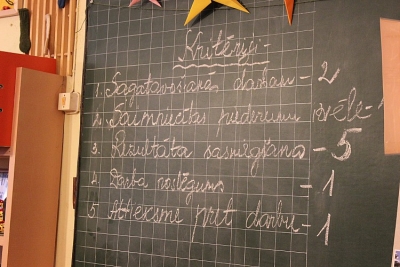 Kritēriji-
1. Sagatavošanās darbam - 2
2. Saimniecības piederumu izvēle - 1
3. Rezultāta sasniegšana - 5
4. Darba noslēgums - 1
5. Attieksme pret darbu - 1